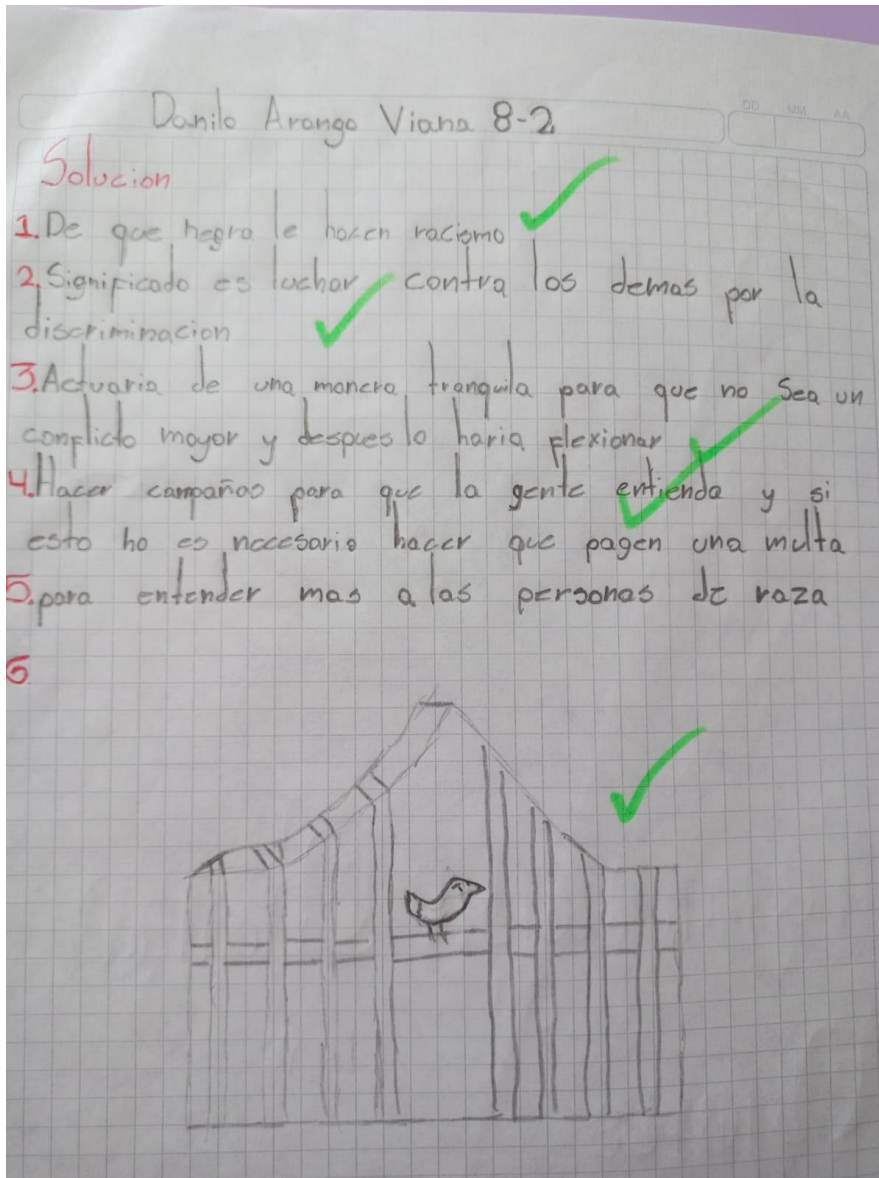 Danilo Arango Viana 8-2
DD MM AA
Solucion
1. De que negro le hacen racismo
2. Significado es luchar contra los demas por la
discriminacion
3. Actuaria de una manera tranquila para que no sea un
conflicto mayor y despues lo haria flexionar
4. Hacer campañas para que la gente entienda y si
esto no es necesario hacer que pagen una multa
5. para entender mas a las personas de raza
6